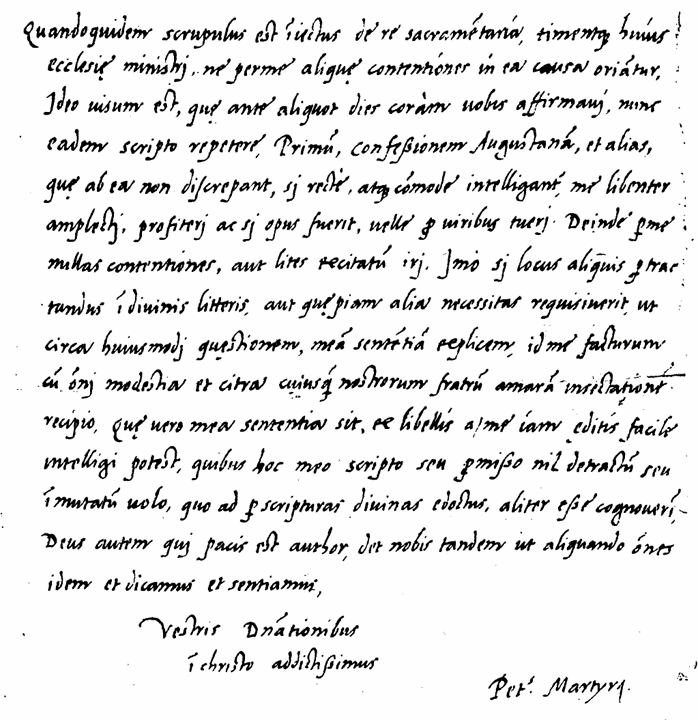 Quandoquidem scrupulus est īiectus de re sacramētaria, timentq; huius
ecclesię ministri, ne perme aliquę contentiones in ea causa oriātur,
Ideo uisum est, quę ante aliquot dies coràm uobis affirmaui, nunc
eadem scripto repetere, Primū, confeßionem Augustanā, et alias,
quę ab ea non discrepant, si rectè, atq; cōmode intelligant, me libenter
amplecti, profiteri ac si opus fuerit, uelle ꝑ uiribus tueri. Deinde ꝑme
nullas contentiones, aut lites excitatū iri. Imò si locus aliquis ꝑtrac
tandus ī diuinis litteris, aut quępiam alia necessitas requisiuerit, ut
circa huiusmodi quęstionem, meā sentētiā explicem, id me facturum
cū ōni modestia et citra cuiusq; nostrorum fratrū amarā insectationē
recipio, Quę uero mea sententia sit, ex libellis a me iam editis facile
intelligi potest, quibus hoc meo scripto seu ꝓmißo nil detractū seu
īmutatū uolo, quo ad ꝑ scripturas diuinas edoctus, aliter eße cognouerī,
Deus autem qui pacis est author, det nobis tandem ut aliquando ōnes
idem et dicamus et sentiamus,
Vestris Dnātionibus
ī christo addictißimus
Pet. Martyr